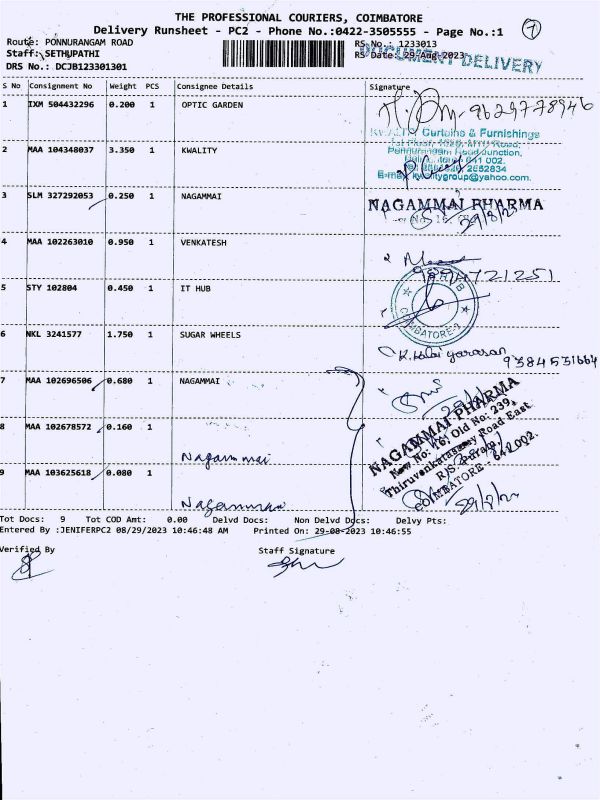 THE PROFESSIONAL COURIERS, COIMBATORE
7
Delivery Runsheet - PC2 - Phone No.:0422-3505555 - Page No.:1
Route: PONNURANGAM ROAD
RS No.: 1233013
Staff: SETHUPATHI
RS Date: 29-Aug-2023
DOCUMENT DELIVERY
DRS No.: DCJB123301301
S No Consignment No Weight PCS Consignee Details Signature
1 IXM 504432296 0.200 1 OPTIC GARDEN 9629778946
KWALITY Curtains & Furnishings
2 MAA 104348037 3.350 1 KWALITY
641 002.
2552834
E-mail: kwalitygroup@yahoo.com.
3 SLM 327292053 0.250 1 NAGAMMAI NAGAMMAI PHARMA
29/8/23
4 MAA 102263010 0.950 1 VENKATESH
9894721251
5 STY 102804 0.450 1 IT HUB
COIMBATORE-2
6 NKL 3241577 1.750 1 SUGAR WHEELS
K. Kalai yarasan 9384531664
7 MAA 102696506 0.680 1 NAGAMMAI
NAGAMMAI PHARMA
New No: 16, Old No: 239,
Thiruvenkatasamy Road East
R.S. Puram,
COIMBATORE - 641 002.
8 MAA 102678572 0.160 1
Nagammai
9 MAA 103625618 0.080 1
Nagammai
Tot Docs: 9 Tot COD Amt: 0.00 Delvd Docs: Non Delvd Docs: Delvy Pts:
Entered By :JENIFERPC2 08/29/2023 10:46:48 AM Printed On: 29-08-2023 10:46:55
Verified By Staff Signature